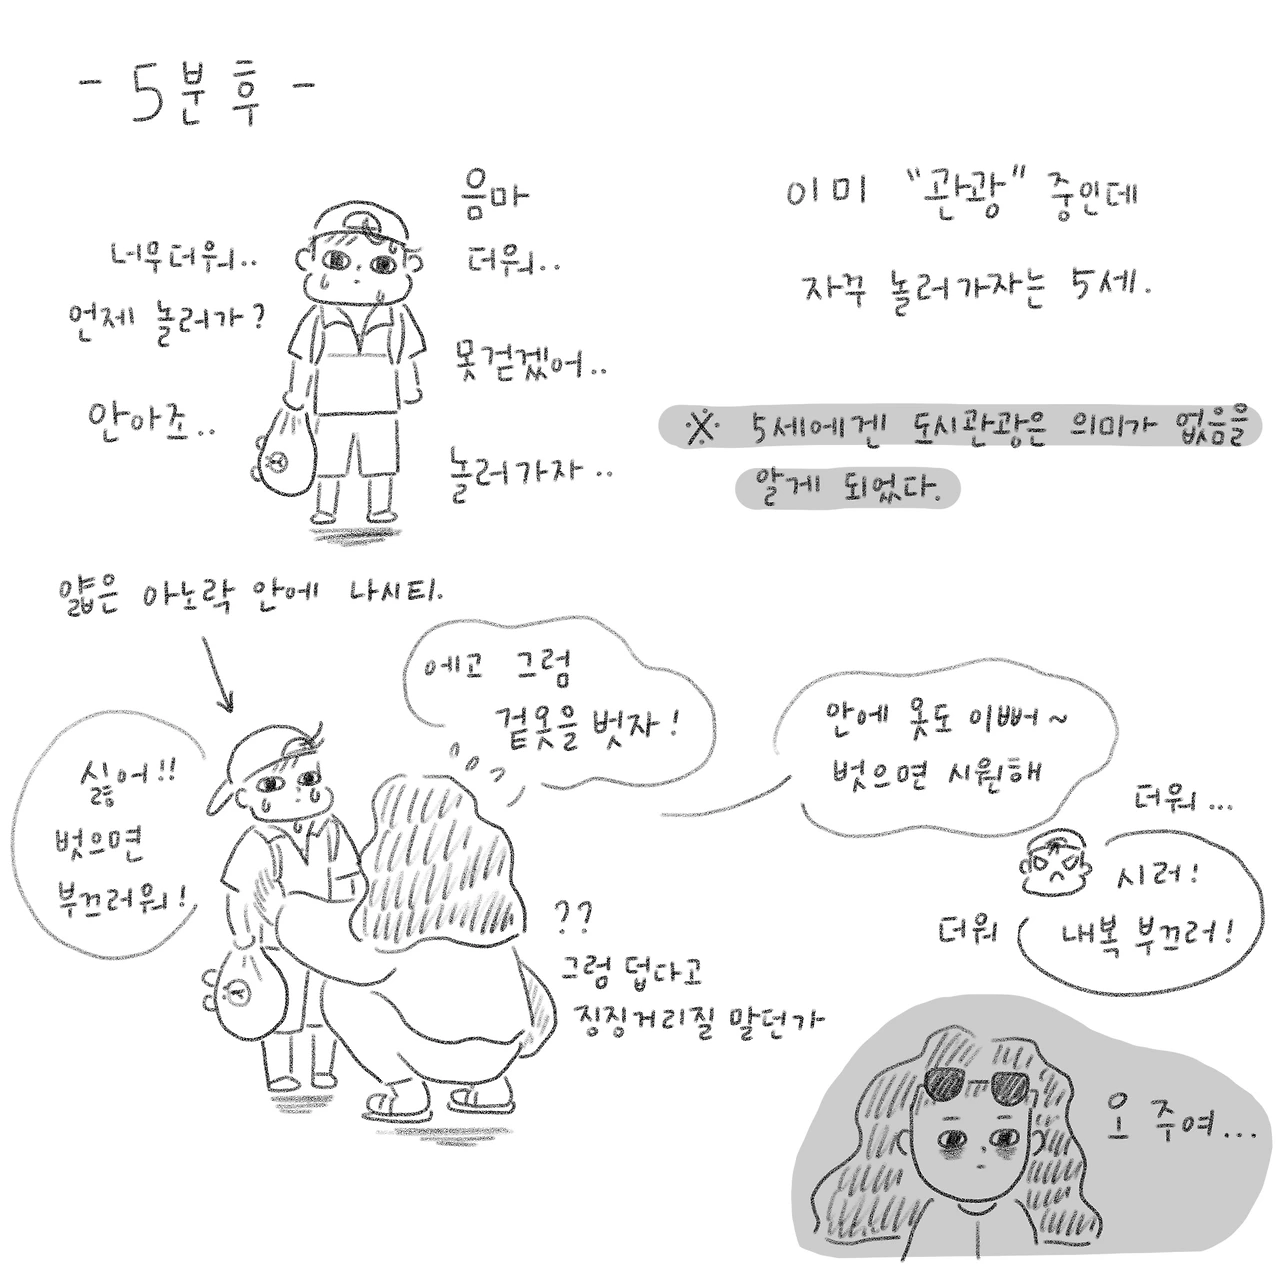 - 5분 후 -
너무더워..
언제 놀러가?
안아조..
음마
더워..
못걷겠어..
놀러가자..
이미 "관광" 중인데
자꾸 놀러가자는 5세.
※ 5세에겐 도시관광은 의미가 없음을
알게 되었다.
얇은 아노락 안에 나시티.
싫어!!
벗으면
부끄러워!
에고 그럼
겉옷을 벗자!
안에 옷도 이뻐~
벗으면 시원해
??
그럼 덥다고
징징거리질 말던가
더워...
시러!
내복 부끄러!
더워
오 주여...